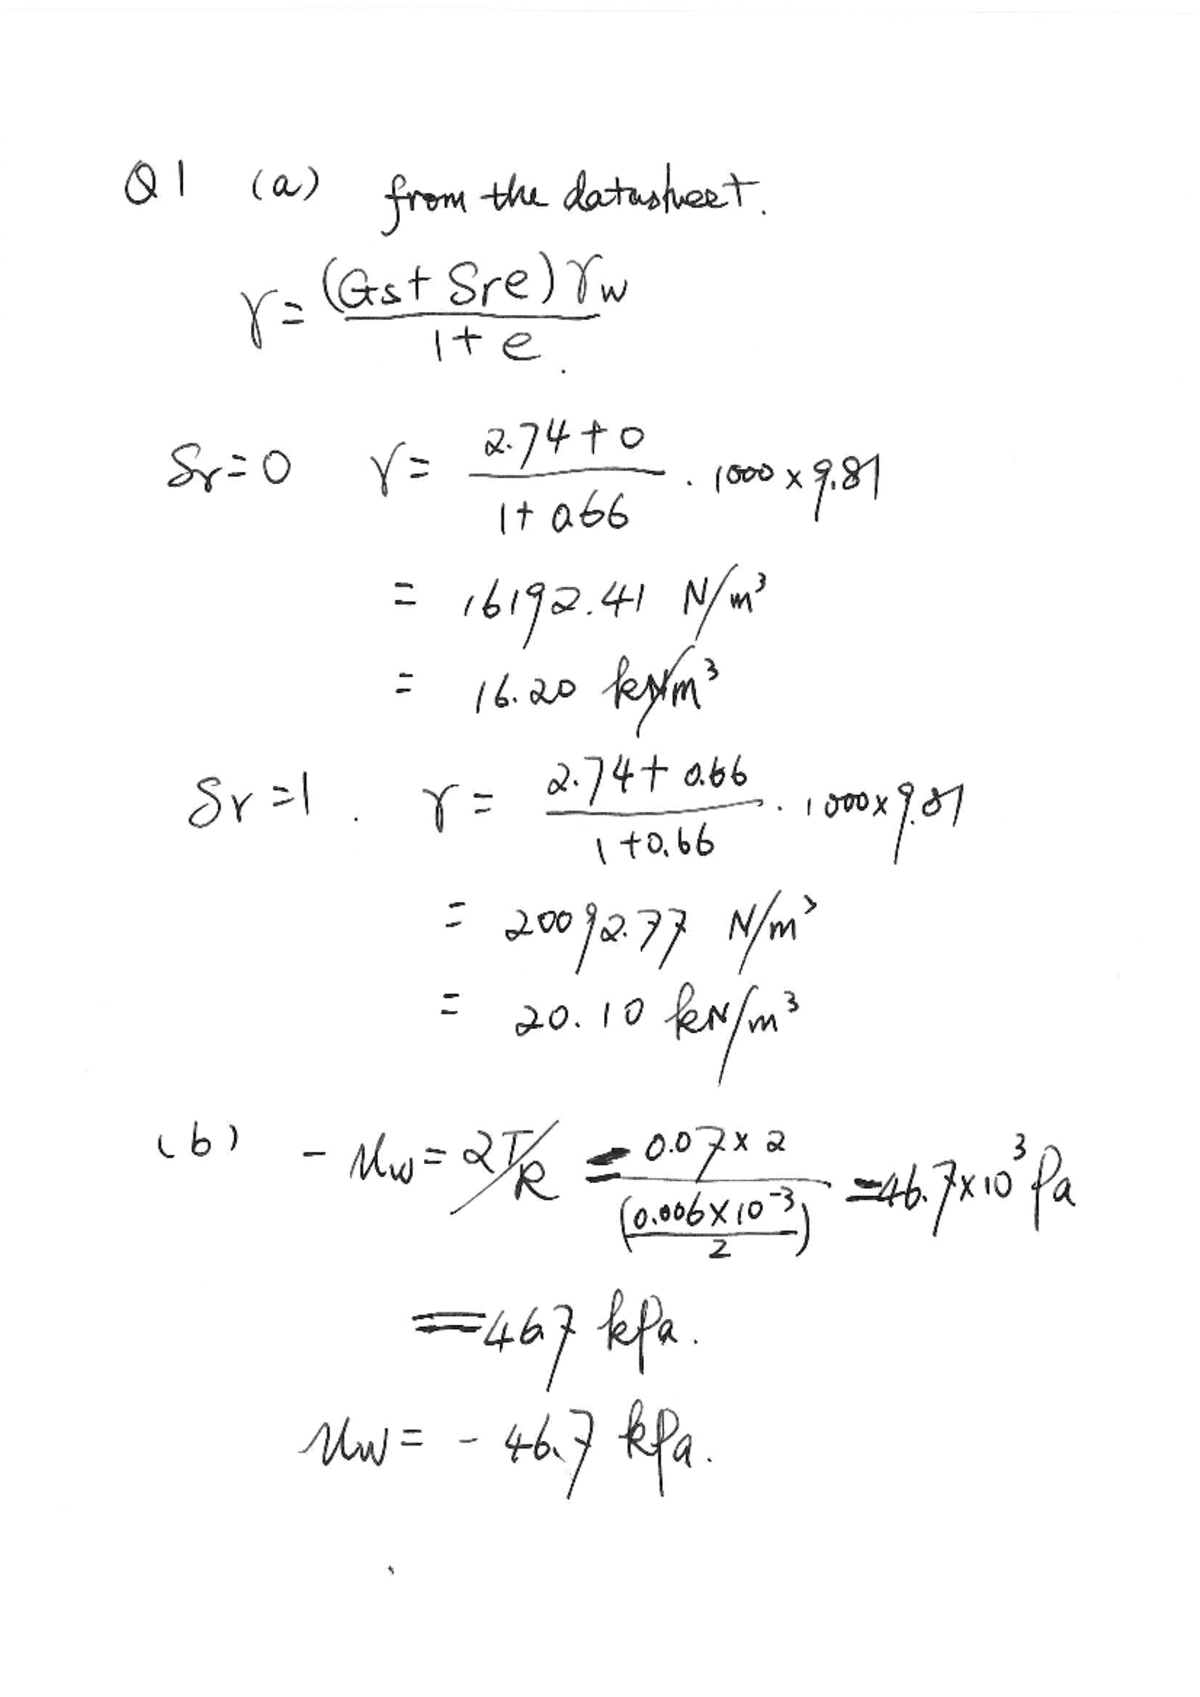 Q1 (a) from the datasheet.
γ = (Gs + Sr e) γw / 1 + e
Sr = 0 γ = 2.74 + 0 / 1 + 0.66 · 1000 × 9.81
= 16192.41 N/m³
= 16.20 kN/m³
Sr = 1. γ = 2.74 + 0.66 / 1 + 0.66 · 1000 × 9.81
= 20092.77 N/m³
= 20.10 kN/m³
(b) - uw = 2T/R = 0.07 × 2 / (0.006 × 10⁻³ / 2) = 46.7 × 10³ Pa
= 46.7 kPa.
uw = - 46.7 kPa.